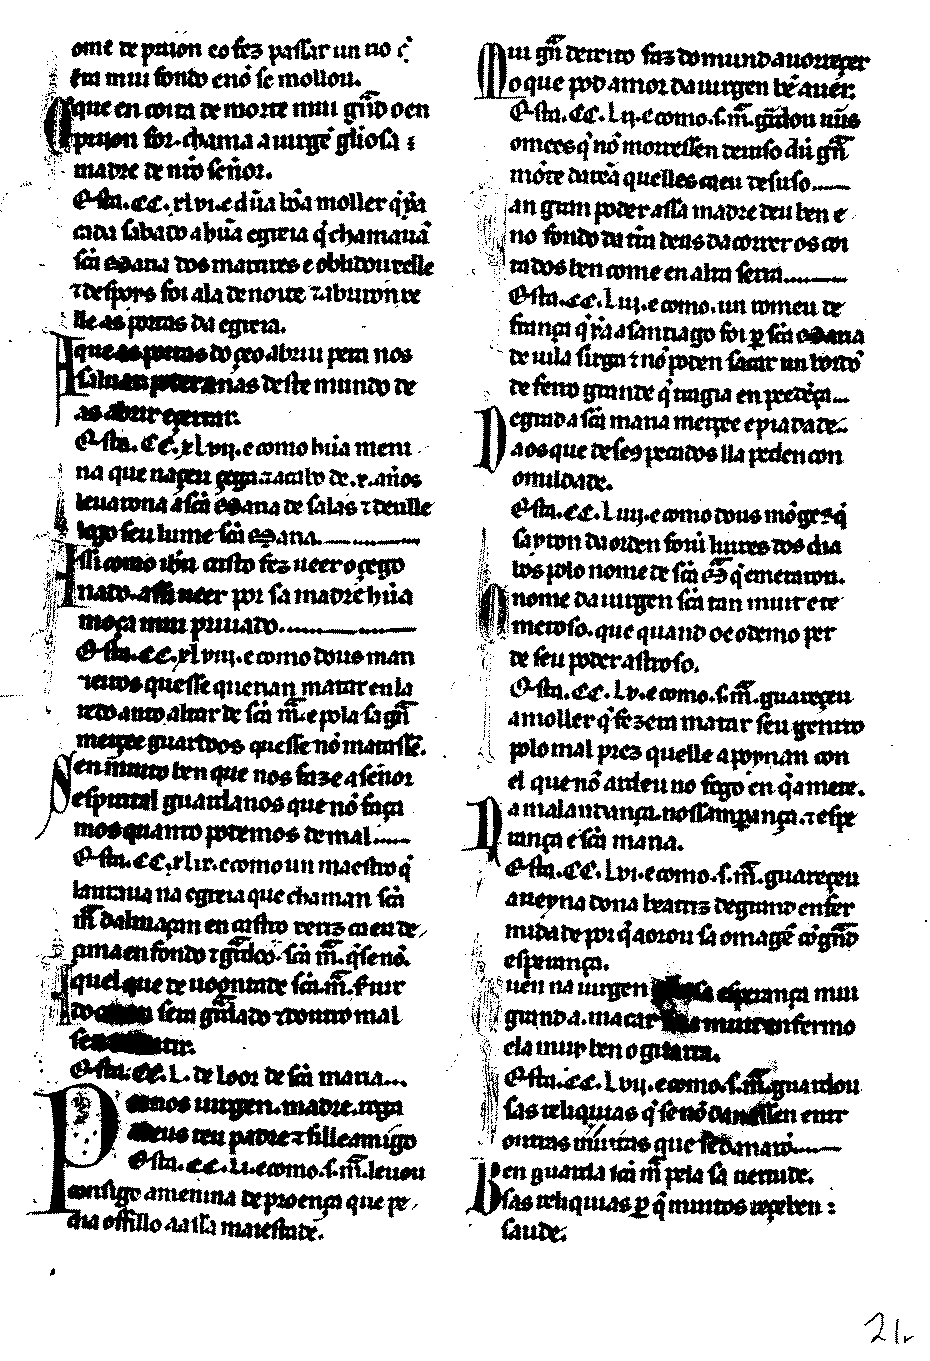 ome de prijon eo fez passar un rio q̇
era mui fondo enõ se mollou.
O que en coita de morte mui grãd o en
prijon for. chama a uirgẽ gl̃iosa ⁊
madre de nr̃o señor.
Esta .CC. xlvi. e dũa bõa moller q̇ ýa
cada sabado a hũa egreia q̇ chamauã
sc̃a maria dos martires e oblidouxelle
⁊ despois foi ala de noite ⁊ abrironxe
lle as portas da egreia.
A que as portas do ceo abriu pera nos
saluar. poder á nas deste mundo de
as abrir e serrar.
Esta .CC. xlvij. e como hũa meni
na que naçeu çega. ⁊ a cabo de .x. años
leuarona a sc̃a maria de salas ⁊ deulle
logo seu lume sc̃a maria.
A ssi como ih̃u cristo fez ueer o çego
nado. assi ueer por sa madre hũa
moça mui priuado.
Esta .CC. xlviij. e como dous mari
neiros quesse querian matar en la
redo ante o altar de sc̃a m̃. e pola sa grã
merçee guardoos quesse nõ matassẽ.
S en muito ben que nos faze a señor
espirital guardanos que nõ faça
mos quanto podemos de mal
Esta .CC. xlix. e como un maestro q̇
lauraua na egreia que chaman sc̃a
m̃ dalmaçan en castro xeriz caeu de
çima en fondo ⁊ guardoo sc̃a m̃. q̇ senõ
A quel que de uoontade sc̃a m̃. seruir
do sera guardado ⁊ doutro mal
se
Esta .CC. L. de loor de sc̃a maria
P or nos uirgen. madre. roga
deus teu padre ⁊ fill e amigo
Esta .CC. Li. e como .s. m̃. leuou
consigo a menina de proença que pe
dia o fillo aa ssa maiestade.
M ui grã dereito faz do mund auorreçer
o que pod amor da uirgen bẽ auer.
Esta .CC. Lij. e como .s. m̃. guardou ũus
omees q̇ nõ morressen deiuso dũ grã
mõte darẽa quelles caeu desuso
an gran poder a ssa madre deu en e
no fondo da terra deus dacorrer os coi
tados ben come en alta serra
Esta .CC. Liij. e como. un romeu de
frança q̇ ýa a santiago foi ꝑ sc̃a maria
de uila sirga ⁊ nõ poden sacar un bordõ
de ferro grande q̇ tragia en pẽedẽça
D e grad a sc̃a maria merçee e piadade
aos que de ses pecados lla peden con
omildade.
Esta .CC. Liiij. e como dous mõges q̇
sayron da orden forũ liures dos dia
bos polo nome de sc̃a m̃ q̇ ementaron.
O nome da uirgen sc̃a tan muit e te
meroso. que quand o e o demo per
de seu poder astroso.
Esta .CC. Lv. e como .s. m̃. guareçeu
a moller q̇ fezera matar seu genrro
polo mal prez quelle apoynan con
el que nõ ardeu no fogo en q̇ a metẽ.
N a malandança. noss amparança. ⁊ espe
rança e sc̃a maria.
Esta .CC. Lvi. e como .s. m̃. guareçeu
a reyna dona beatriz de grand enfer
midade por q̇ aorou sa omagẽ cõ grãd
esperança.
uen na uirgen groriosa esperança mui
grand a. macar seia muit enfermo
ela mui ben o guarra.
Esta .CC. Lvij. e como .s. m̃. guardou
sas reliquias q̇ senõ danassen entr
outras muitas que se danarõ
B en guarda sc̃a m̃ pela sa uertude.
sas reliquias ꝑ q̇ muitos reçeben :
saude.
21r